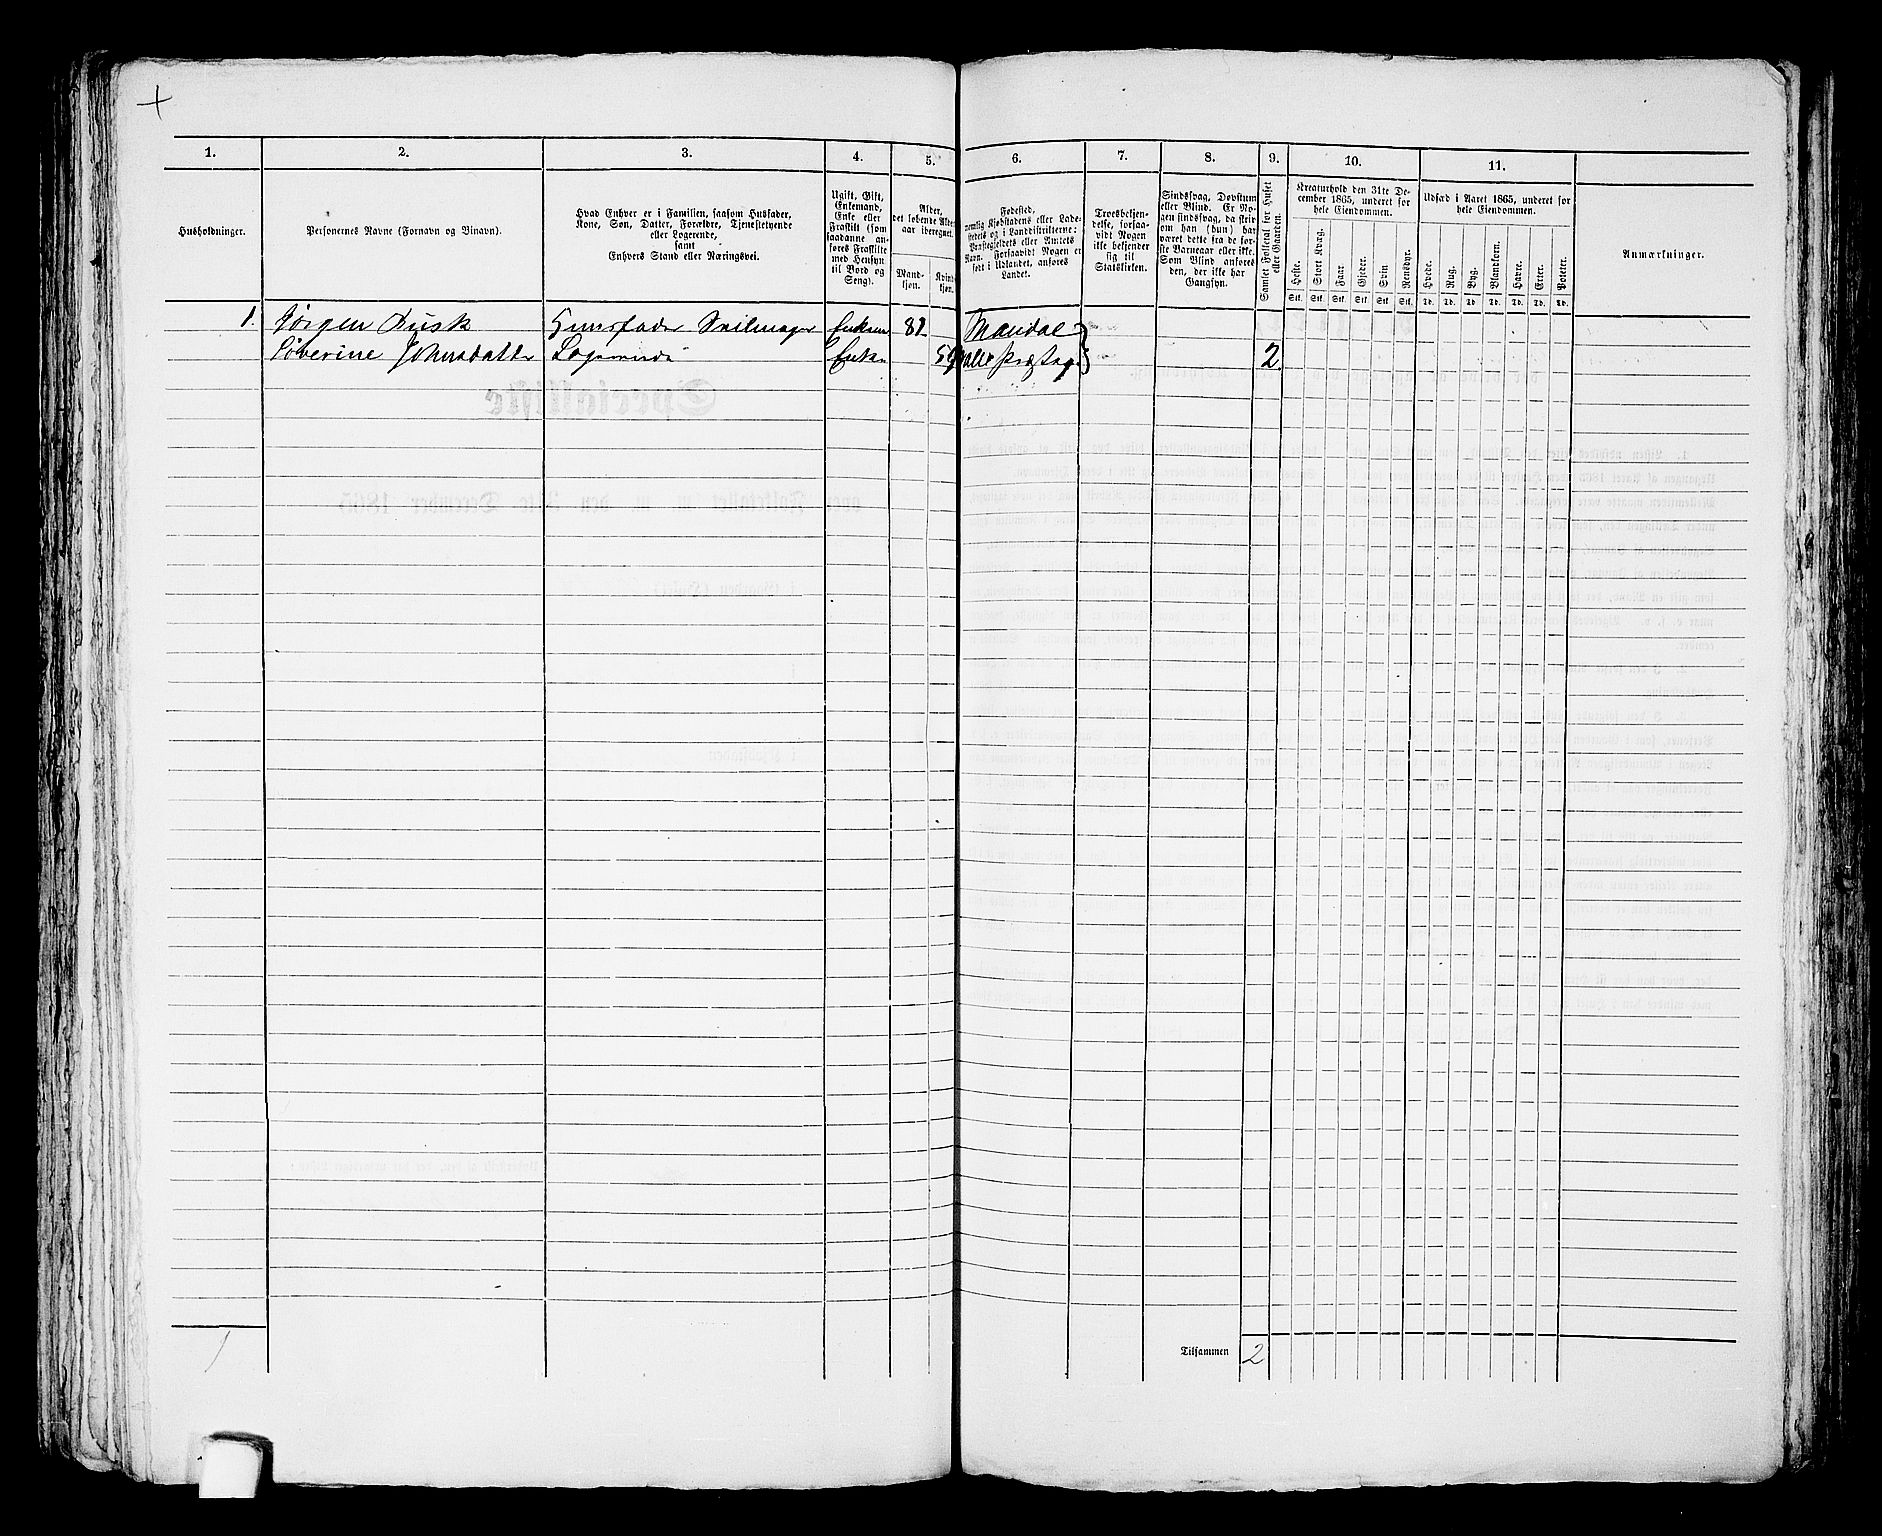 1. 2. 3. 4. 5. 6. 7. 8. 9. 10. 11.
Husholdninger.
Personernes Navne (Fornavn og Vinavn).
Hvad Enhver er i Familien, saasom Husfader,
Kone, Søn, Datter, Forældre, Tjenestetyende
eller Logerende,
samt
Enhvers Stand eller Næringsvei.
Ugift, Gift,
Enkemand,
Enke eller
Fraskilt (som
saadanne an-
føres Fraskilte
med Hensyn
til Bord og
Seng).
Alder,
det løbende Alders-
aar iberegnet.
Mand-
kjøn.
Kvind-
kjøn.
Fødested,
nemlig Kjøbstadens eller Lade-
stedets og i Landdistrikterne:
Præstegjeldets eller Amtets
Navn. Forsaavidt Nogen er
født i Udlandet, anføres
Landet.
Troesbekjen-
delse, forsaa-
vidt Nogen
ikke bekjender
sig til
Statskirken.
Sindssvag, Døvstum
eller Blind. Er No-
gen sindssvag, da skriv
om han (hun) har
været dette fra de før-
ste Barneaar eller ikke.
Som Blind anføres
den, der ikke har
Gangsyn.
Samlet Folketal for Huset
eller Gaarden.
Kreaturhold den 31te De-
cember 1865, underet for
hele Eiendommen.
Heste. Stort Kvæg. Faar. Gjeder. Svin Rensdyr.
Stk. Stk. Stk. Stk. Stk. Stk.
Udsæd i Aaret 1865, underet for
hele Eiendommen.
Hvede. Rug. Byg. Blandkorn. Havre. Erter. Poteter.
Td. Td. Td. Td. Td. Td. Td.
Anmærkninger.
1. Jørgen Husfader Seilmager Enkem 82 Mandal
Søverine Johnsdatter Logerende Enke 2
1
Tilsammen 2